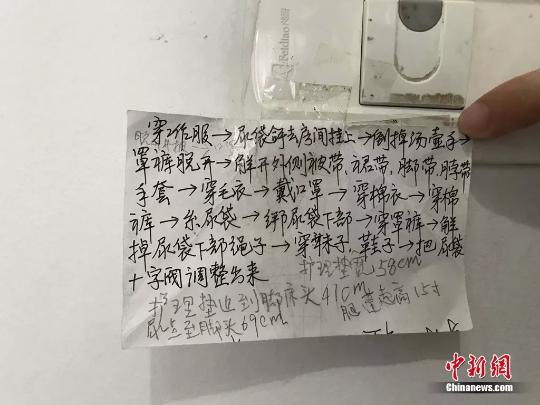 Feidiao 飞雕
穿工作服→尿袋拿去房间挂上→倒掉汤壶手→
罩裤脱开→解开外侧被带、裙带、脚带、脖带
手套→穿毛衣→戴口罩→穿棉衣→穿棉
裤→糸尿袋→绑尿袋下部→穿罩裤→解
掉尿袋下部绳子→穿袜子、鞋子→把尿袋
十字阀调整出来
护理垫宽58cm
护理垫边到脚床头41cm
尿点至脚头69cm
腿垫高15寸
中新网
Chinanews.com